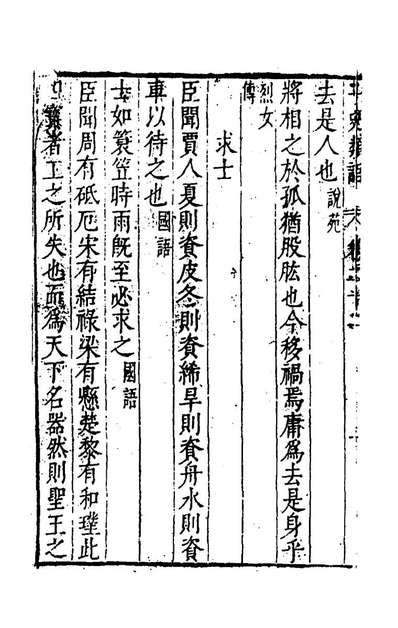 去是人也說苑
將相之於孤猶股肱也今移禍焉庸爲去是身乎
烈女
傳
求士
臣聞賈人夏則資皮冬則資絺旱則資舟水則資
車以待之也國語
士如簑笠時雨旣至必求之國語
臣聞周有砥厄宋有結祿梁有懸楚黎有和璞此
寶者工之所失也而爲天下名器然則聖王之